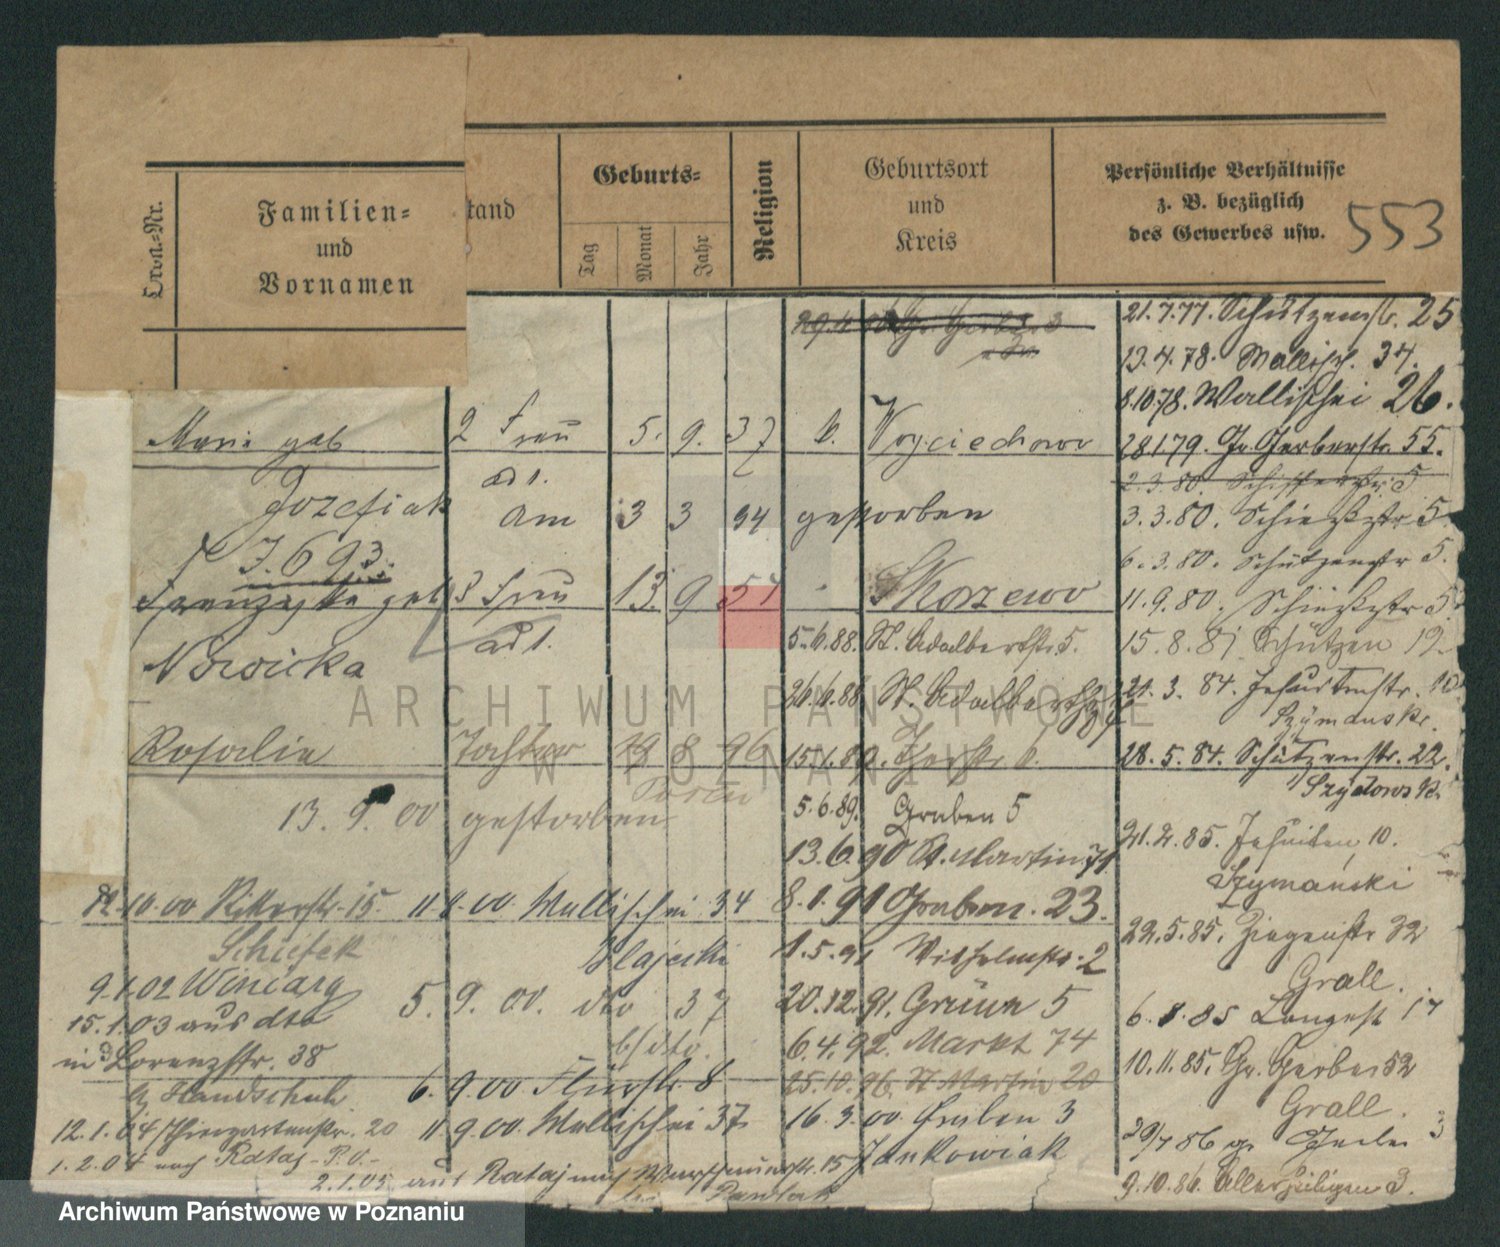 Familien=
und
Vornamen
tand
Geburts=
Tag
Monat
Jahr
Religion
Geburtsort
und
Kreis
Persönliche Verhältnisse
z. B. bezüglich
des Gewerbes usw.
553
Marie geb
Jozefiak
2 Frau
ad 1.
5. 9. 37
am 3 3 94 gestorben
geb
Nowicka
3 Frau
ad 1.
13. 9 57
Skorzewo
Rosalie
Tochter
18 8 96
Posen
13. 9. 00 gestorben
12.10.00 Ritterstr. 15
9.1.02 Winiary
15.1.03 aus dto
in Lorenzstr. 38
b. Handschuh
12.1.04 Thiergartenstr. 20
1.2.04 nach Rataj - P.O.-
2.1.05 aus Rataj nach
15
Pawlak
11 8.00 Wallischei 34
5. 9. 00. dto 37
b/dto.
6. 9.00 Flurstr. 8
11 9.00 Wallischei 37
5.6.88. St. Adalbertstr. 5.
26.6.88 St. Adalbertstr
5.6.89. Graben 5
13.6.90 St. Martin 71
8.1.91 Graben. 23.
1.5.91 Wilhelmstr. 2
20.12.91. Grüne 5
6.4.92. Markt 74
25.10.96. St Martin 20
16.3.00 Graben 3
Jankowiak
21.7.77. Schützenstr. 25
13.4.78. Wallisch. 34.
8.10.78. Wallischei 26.
28.1.79. Gr Gerberstr. 55.
2.3.80. Schifferstr. 5
3.3.80. Schießstr 5
6.3.80. Schützenstr 5.
11.9.80. Schießstr 5
15.8.81 Schützen 19
21.3.84. Jesuitenstr. 10
Szymansk.
28.5.84. Schützenstr. 22.
Szydowsk.
21.2.85. Jesuiten 10.
Szymański
22.5.85. Ziegenstr 22
Grall.
6.8.85 Langest 17
10.11.85. Gr. Gerber 52
Grall.
29/7 86 gr Gerber 3
9.10.86. Allerheiligen 3.
ARCHIWUM PAŃSTWOWE
W POZNANIU
Archiwum Państwowe w Poznaniu